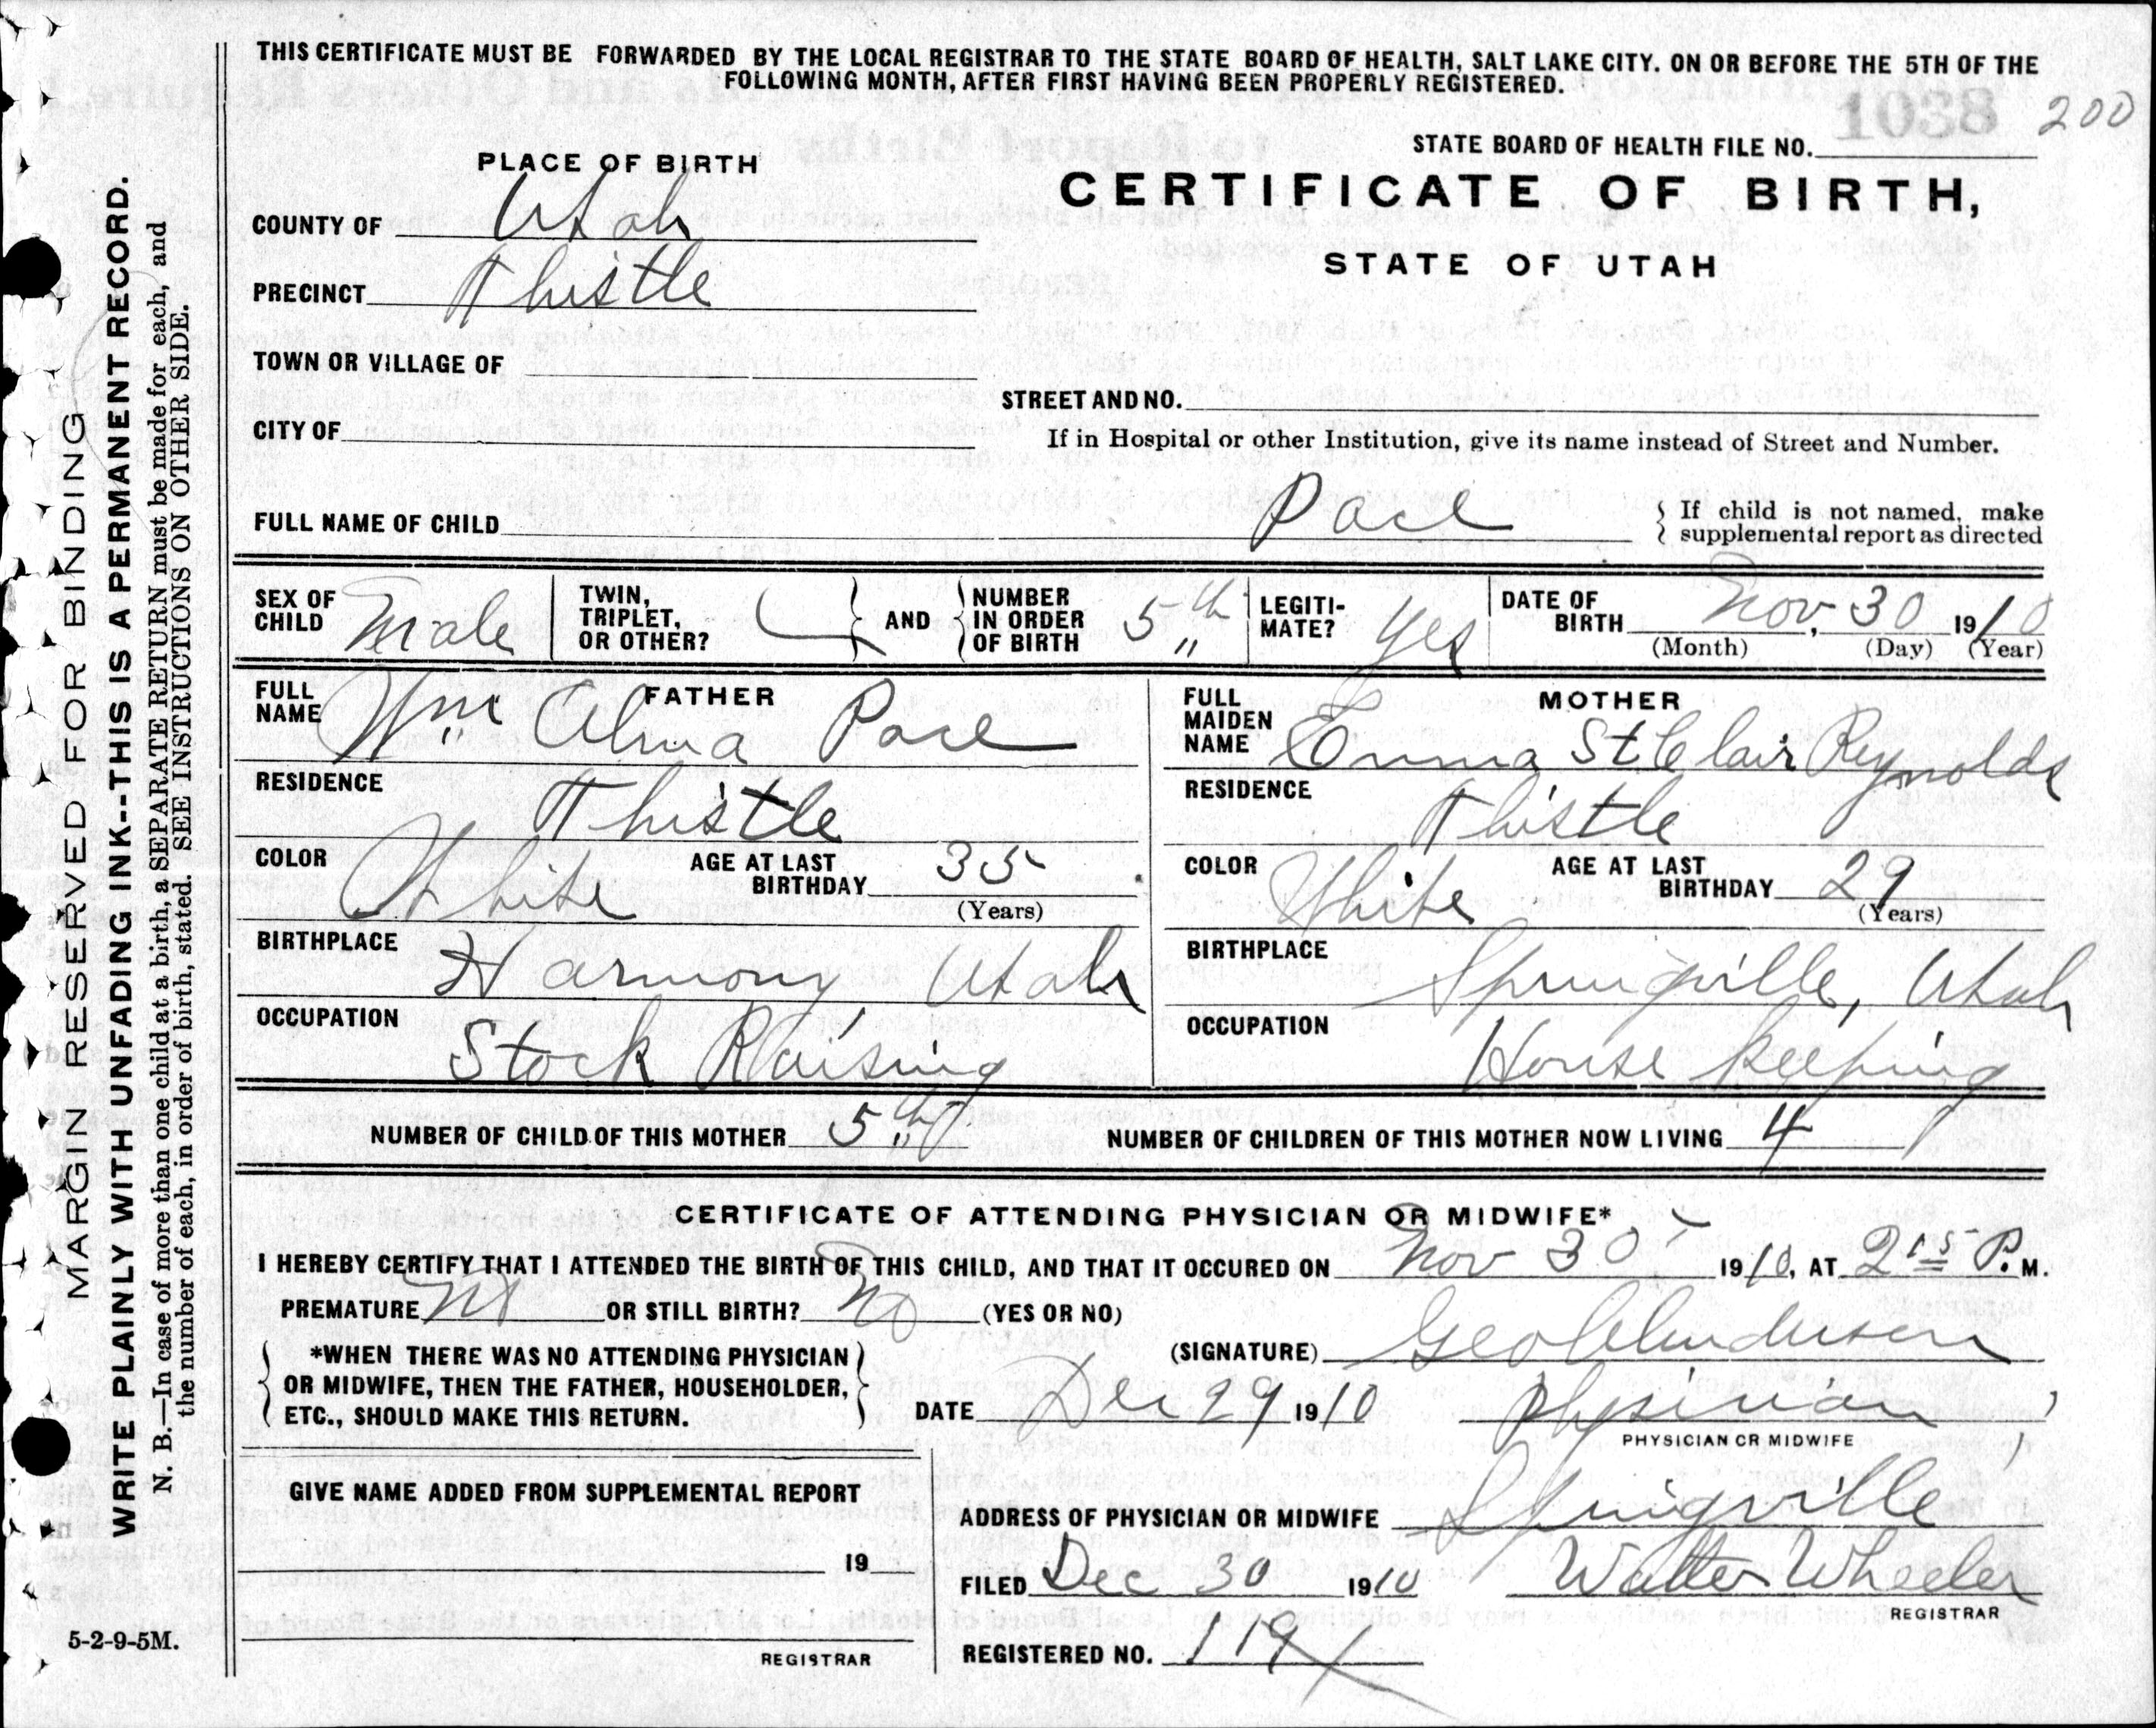 THIS CERTIFICATE MUST BE FORWARDED BY THE LOCAL REGISTRAR TO THE STATE BOARD OF HEALTH, SALT LAKE CITY. ON OR BEFORE THE 5TH OF THE
FOLLOWING MONTH, AFTER FIRST HAVING BEEN PROPERLY REGISTERED.
1038 200
STATE BOARD OF HEALTH FILE NO.
PLACE OF BIRTH
CERTIFICATE OF BIRTH,
STATE OF UTAH
COUNTY OF Utah
PRECINCT Thistle
TOWN OR VILLAGE OF
STREET AND NO.
CITY OF
If in Hospital or other Institution, give its name instead of Street and Number.
FULL NAME OF CHILD Pace
If child is not named, make
supplemental report as directed
SEX OF CHILD Male
TWIN, TRIPLET, OR OTHER?
AND
NUMBER IN ORDER OF BIRTH 5th
LEGITI-MATE? Yes
DATE OF BIRTH Nov. 30 1910
(Month) (Day) (Year)
FATHER
FULL NAME Wm Alma Pace
RESIDENCE Thistle
COLOR White
AGE AT LAST BIRTHDAY 35
(Years)
BIRTHPLACE Harmony Utah
OCCUPATION Stock Raising
MOTHER
FULL MAIDEN NAME Emma St Clair Reynolds
RESIDENCE Thistle
COLOR White
AGE AT LAST BIRTHDAY 29
(Years)
BIRTHPLACE Springville, Utah
OCCUPATION House keeping
NUMBER OF CHILD OF THIS MOTHER 5th
NUMBER OF CHILDREN OF THIS MOTHER NOW LIVING 4
CERTIFICATE OF ATTENDING PHYSICIAN OR MIDWIFE*
I HEREBY CERTIFY THAT I ATTENDED THE BIRTH OF THIS CHILD, AND THAT IT OCCURED ON Nov 30 1910, AT 2 15 P. M.
PREMATURE No OR STILL BIRTH? No (YES OR NO)
(SIGNATURE) Geo Anderson
*WHEN THERE WAS NO ATTENDING PHYSICIAN
OR MIDWIFE, THEN THE FATHER, HOUSEHOLDER,
ETC., SHOULD MAKE THIS RETURN.
DATE Dec 29 1910 Physician
PHYSICIAN OR MIDWIFE
GIVE NAME ADDED FROM SUPPLEMENTAL REPORT
19
REGISTRAR
ADDRESS OF PHYSICIAN OR MIDWIFE Springville
FILED Dec 30 1910 Walter Wheeler
REGISTRAR
REGISTERED NO. 119
5-2-9-5M.
MARGIN RESERVED FOR BINDING
WRITE PLAINLY WITH UNFADING INK--THIS IS A PERMANENT RECORD.
N. B.—In case of more than one child at a birth, a SEPARATE RETURN must be made for each, and
the number of each, in order of birth, stated. SEE INSTRUCTIONS ON OTHER SIDE.